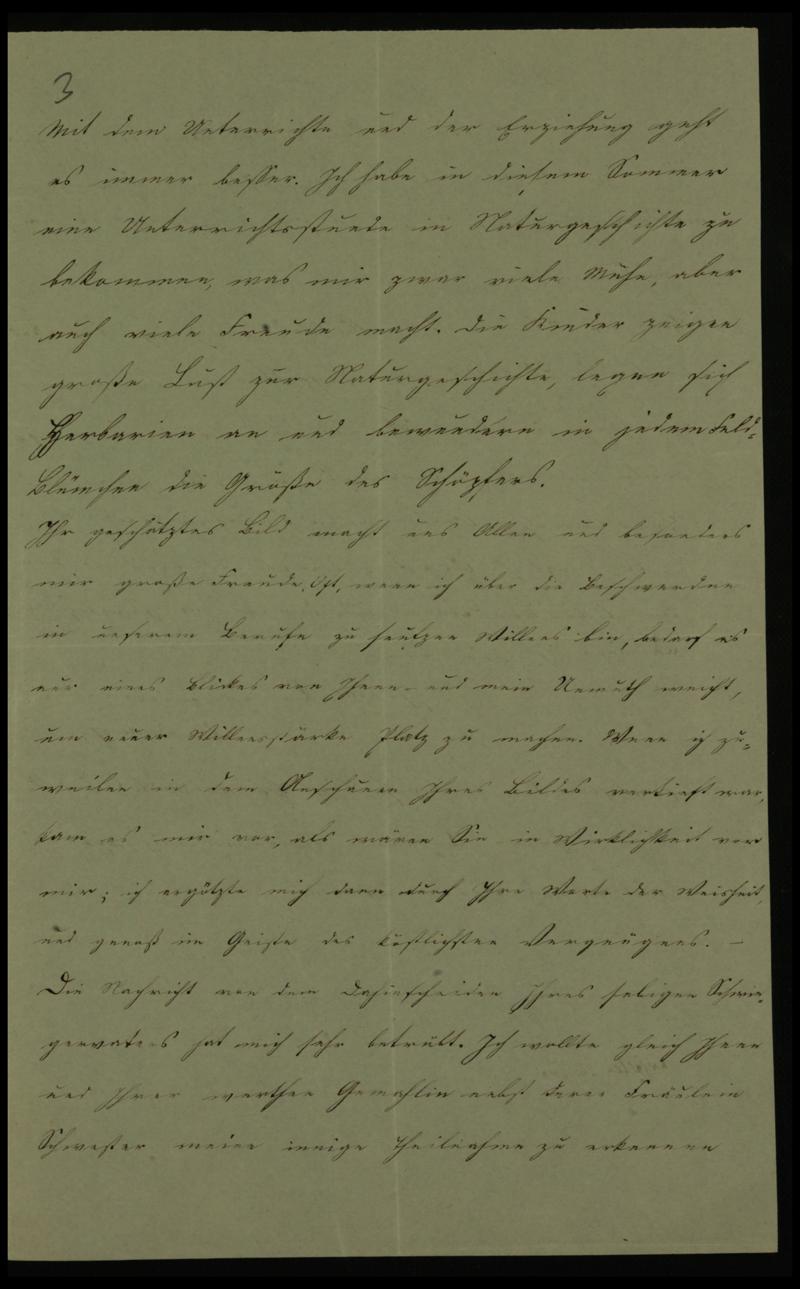 3
Mit dem Unterrichte und der Erziehung geht
es immer besser. Ich habe in diesem Sommer
eine Unterrichtsstunde in Naturgeschichte zu
bekommen, was mir zwar viele Mühe, aber
auch viele Freude macht. Die Kinder zeigen
große Lust zur Naturgeschichte, legen sich
Herbarien an und bewundern in jedem Feld-
Blümchen die Größe des Schöpfers.
Ihr geschätztes Bild macht uns Allen und besonders
mir große Freude. Oft, wenn ich über die Beschwerden
in unserem Berufe zu seufzen Willens bin, bedarf es
nur eines Blickes von Ihnen und mein Unmuth weicht,
um neuer Willensstärke Platz zu machen. Wenn ich zu-
weilen in dem Anschauen Ihres Bildes vertieft war,
kam es mir vor, als wären Sie in Wirklichkeit vor
mir; ich ergötzte mich dann durch Ihre Worte der Weisheit,
und genoß im Geiste des köstlichsten Vergnügens. –
Die Nachricht von dem Dahinscheiden Ihres seligen Schwie-
gervaters hat mich sehr betrübt. Ich wollte gleich Ihnen
und Ihrer werthen Gemahlin nebst deren Fräulein
Schwester meine innige Theilnahme zu erkennen